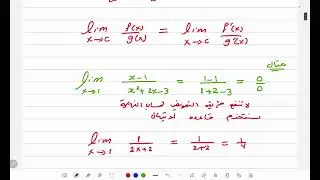 lim x→c f(x)/g(x) = lim x→c f'(x)/g'(x)
مثال
lim x→1 (x-1)/(x²+2x-3) = (1-1)/(1+2-3) = 0/0
لا تنفع طريقة التعويض لحساب النهاية
نستخدم قاعدة لوبيتال
lim x→1 1/(2x+2) = 1/(2+2) = 1/4